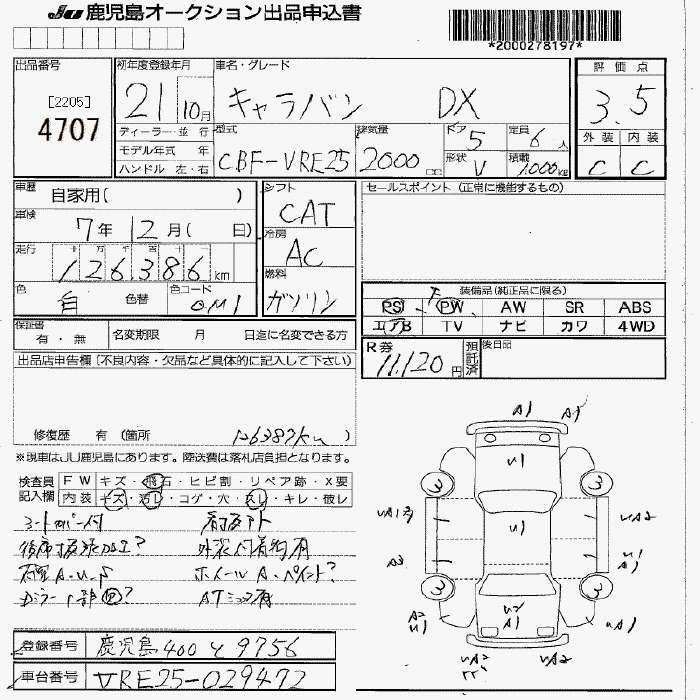 JU 鹿児島オークション出品申込書
*2000278197*
出品番号
[2205]
4707
初年度登録年月
21 10月
車名・グレード
キャラバン DX
評価点
3.5
外装 内装
C C
ディーラー・並行
モデル年式 年
ハンドル 左・右
型式
CBF-VRE25
排気量
2000 cc
ドア
5
定員
6人
形状
V
積載
1,000KG
車歴
自家用( )
車検
7年 12月( 日)
走行
十 万 千 百 十 一
126386 km
色
白
色替
色コード
QM1
シフト
CAT
冷房
AC
燃料
ガソリン
セールスポイント (正常に機能するもの)
装備品(純正品に限る)
PS PW AW SR ABS
エアB TV ナビ カワ 4WD
保証書
有・無
名変期限 月 日迄に名変できる方
R券
11,120円
預託済
後日品
出品店申告欄 (不良内容・欠品など具体的に記入して下さい)
修復歴 有 (箇所
126387km )
※現車はJU鹿児島にあります。陸送費は落札店負担となります。
検査員記入欄
FW キズ・飛石・ヒビ割・リペア跡・X要
内装 キズ・汚レ・コゲ・穴・スレ・キレ・破レ
シートカバー付
外装付着物有
ホイールA・ペイント?
ATミッション有
A1
U1
U1
U2
A1
3
3
3
3
UA2
A3
U1
A1
A2
U1
UA1
UA2
UA1
登録番号
鹿児島 400 そ 9756
車台番号
VRE25-029472